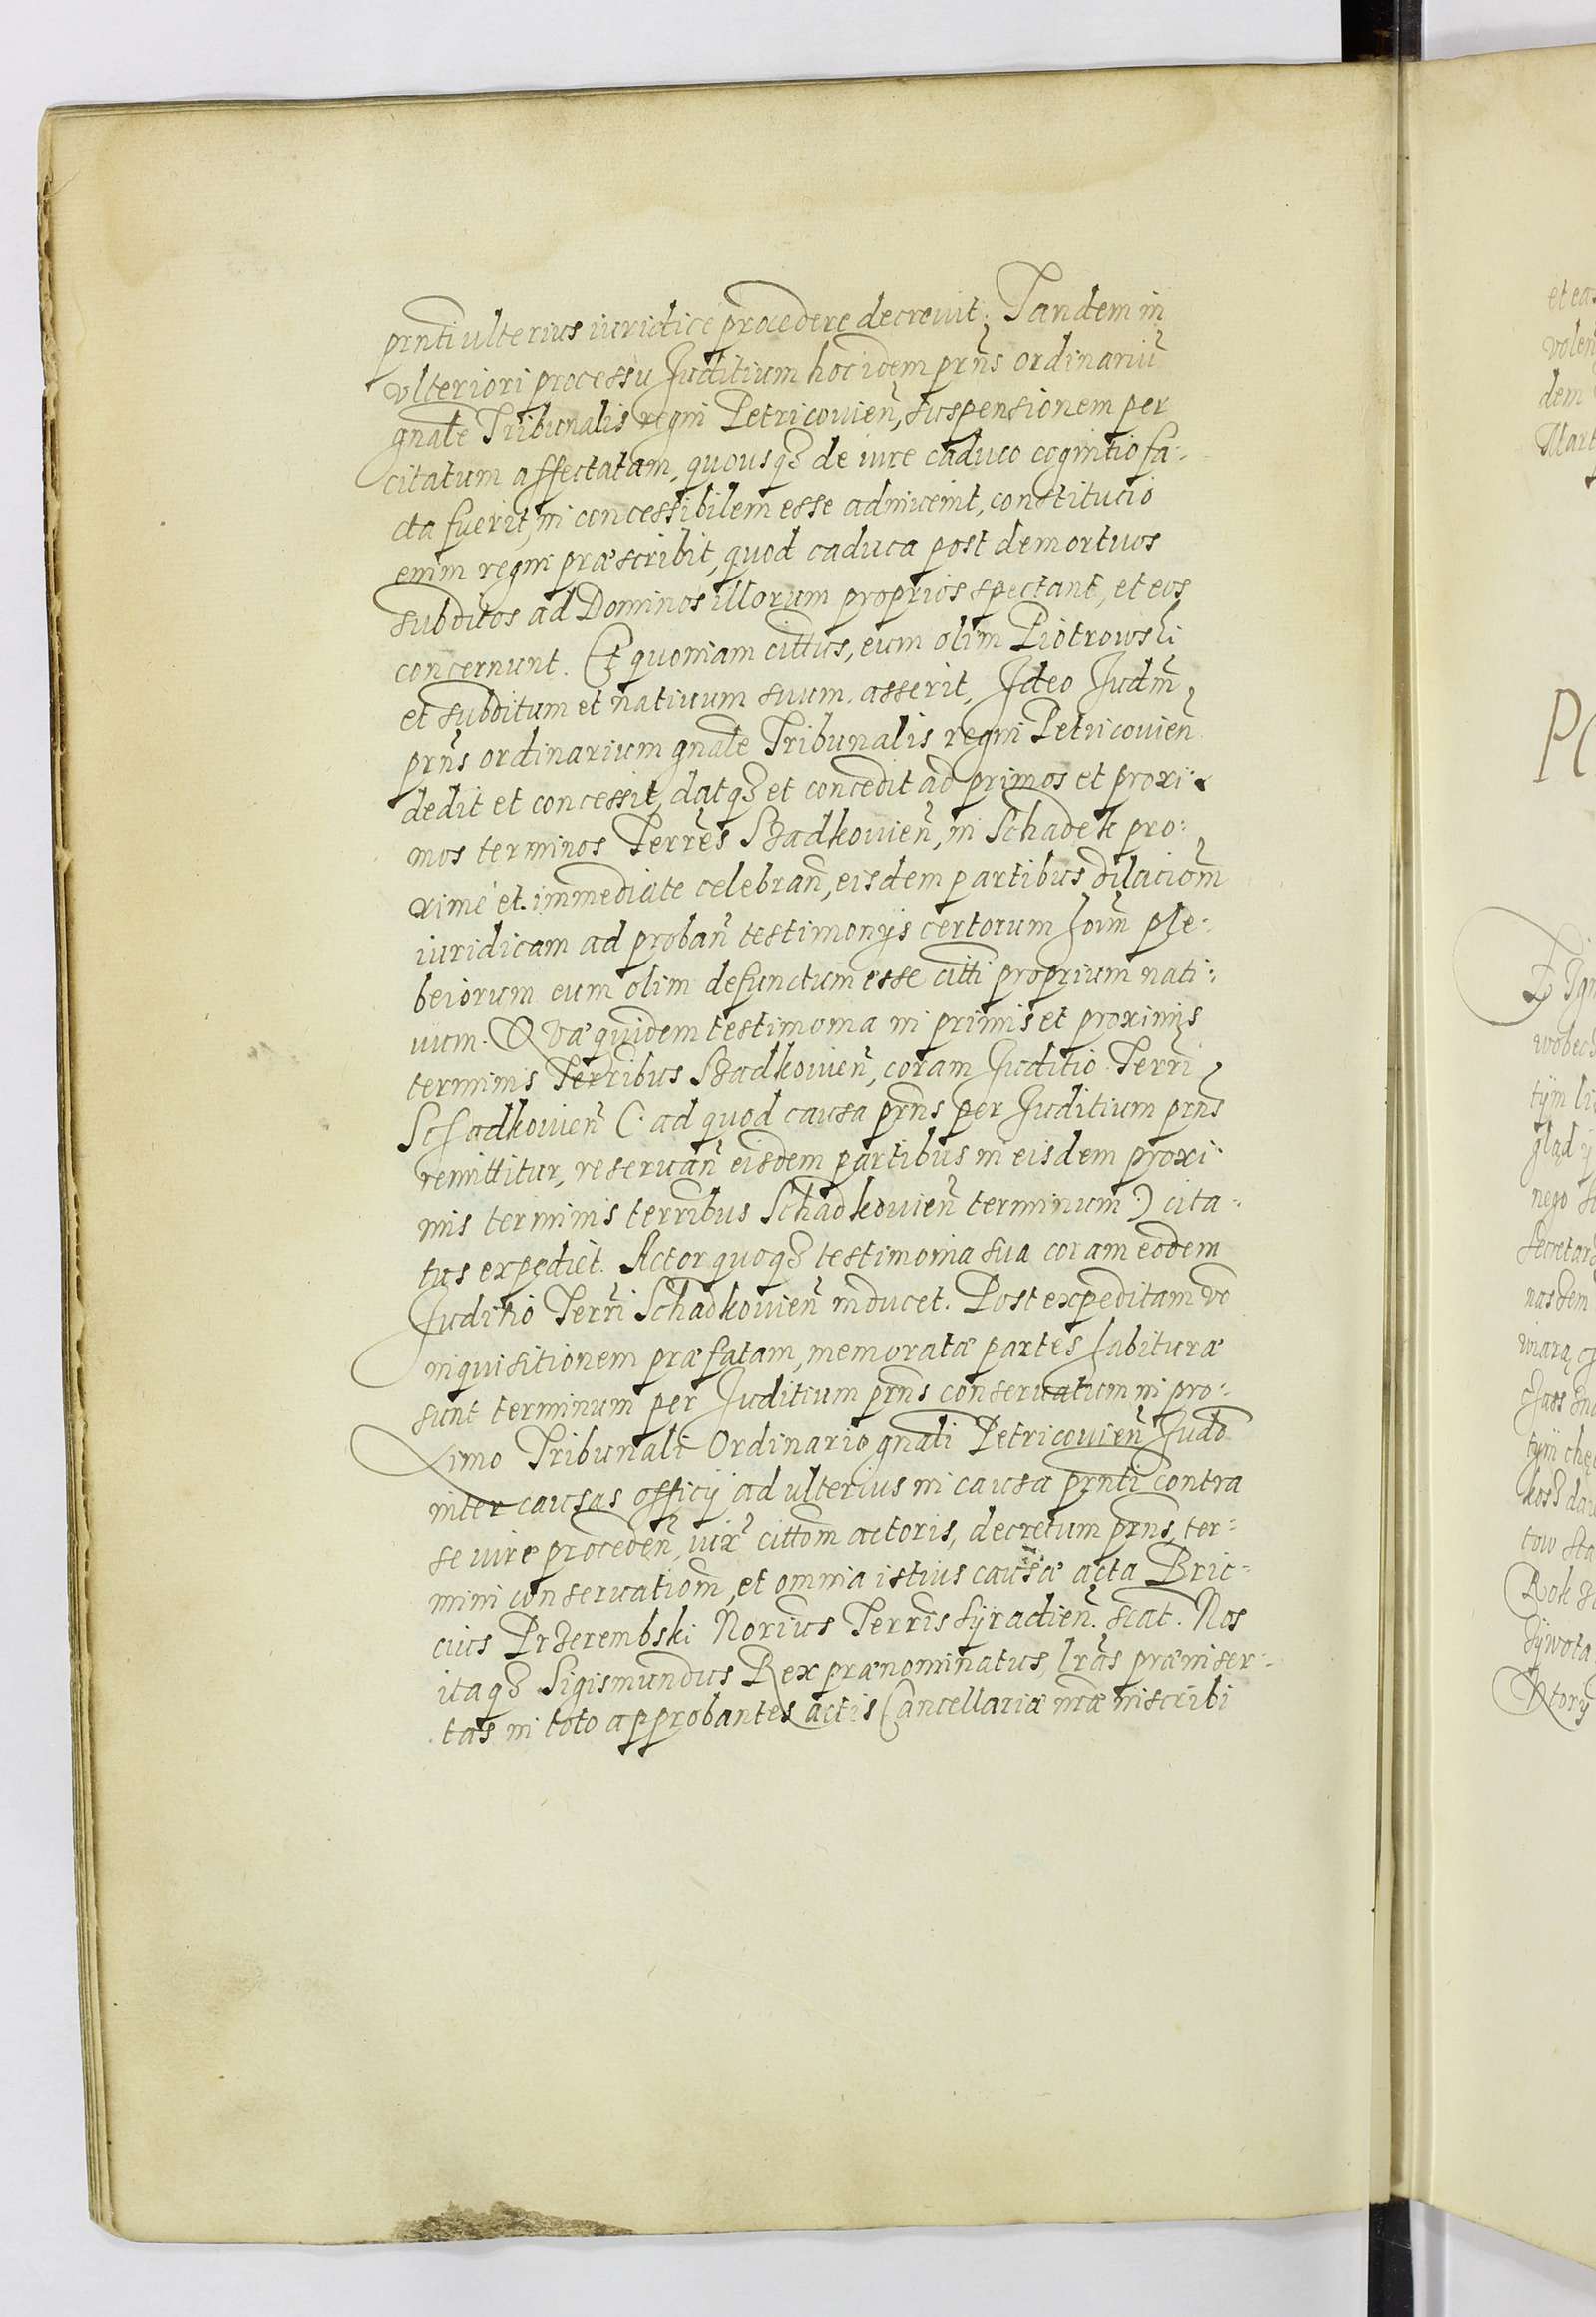 prnti ulterius iuridice procedere decreuit. Tandem in
vlteriori processu Juditium hoc idem prns ordinariu
gnale Tribunalis regni Petricouien, suspensionem per
citatum affectatam, quousq3 de iure caduco cognitio fa-
cta fuerit, in concessibilem esse adinuenit, constitucio
enim regni præscribit, quod caduca post demortuos
subditos ad Dominos illorum proprios spectant, et eos
concernunt. Et quoniam cittus, eum olim Piotrowski
et subditum et natiuum suum asserit, Ideo Judm
prns ordinarium gnale Tribunalis regni Petricouien
dedit et concessit, datq3 et concedit ad primos et proxi-
mos terminos Terres Szadkouien, in Schadek pro-
xime et immediate celebran, eisdem partibus dilaciom
iuridicam ad proban testimonijs certorum hoim ple-
beiorum eum olim defunctum esse citti proprium nati-
uum. Quæ quidem testimonia in primis et proximis
terminis Terribus Szadkouien, coram Juditio Terri
Schadkouien (: ad quod causa prns per Juditium prns
remittitur, reseruan eisdem partibus in eisdem proxi-
mis terminis terribus Schadkouien terminum :) cita-
tus expediet. Actor quoq3 testimonia sua coram eodem
Juditio Terri Schadkouien inducet. Post expeditam vo
inquisitionem præfatam, memoratæ partes habituræ
sunt terminum per Juditium prns conseruatum in pro-
ximo Tribunali Ordinario gnali Petricouien Judo
inter causas officij ad ulterius in causa prnti contra
se iure proceden, iux cittom actoris, decretum prns, ter-
mini conseruatiom, et omnia istius causæ acta Bric-
cius Przerembski Norius Terris Syradien. scat. Nos
itaq3 Sigismundus Rex prænominatus, lras præinser-
tas in toto approbantes actis Cancellariæ nræ inscribi
et eas
volen
dem
Mart
PO
Zigm
wobec
tym li
gląd ij
nego
Secretar
nasdem
wiarą
tym chę
kosz da
tow sta
Rok
dywota
Ktory